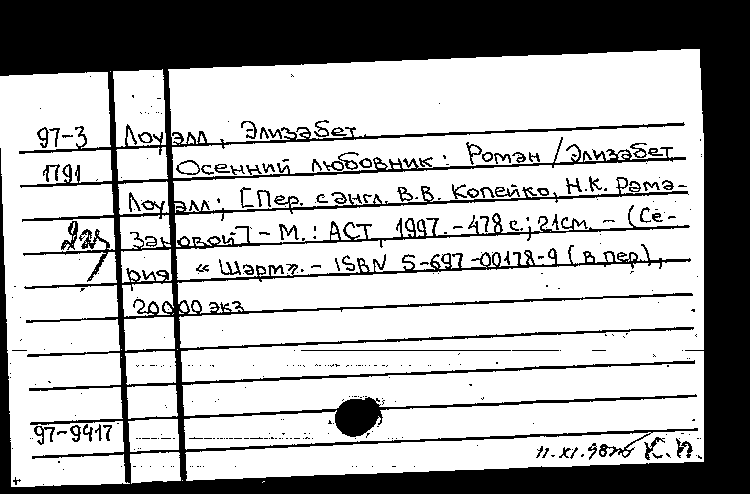 97-3 Лоуэлл, Элизабет.
1791 Осенний любовник: Роман / Элизабет
Лоуэлл; [Пер. с англ. В.В. Копейко, Н.К. Рама-
зановой] - М.: АСТ, 1997. - 478 с.; 21см. - (Се-
рия «Шарм». - ISBN 5-697-00178-9 (в пер.),
20000 экз
97-9417
11.XI.98 К.П.